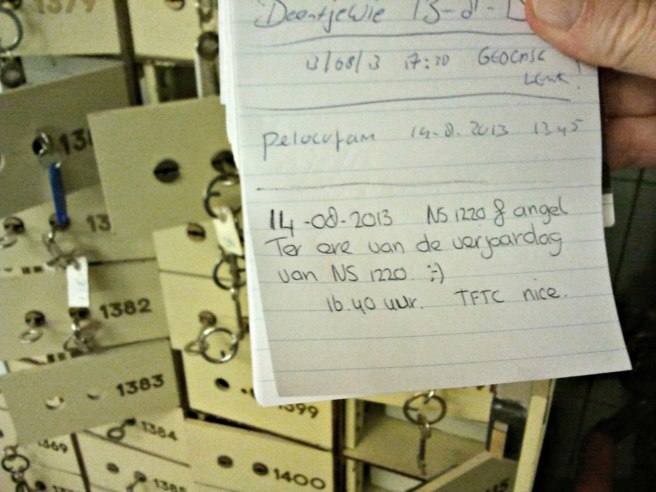 Deentjewie 13-8-
3/08/3 17:20 GEOCASE
LEUK!
pelocufam 14-8-2013 13 45
14-08-2013 NS 1220 & angel
Ter ere van de verjaardag
van NS 1220 :-)
16.40 uur. TFTC nice.
1379
1382
1383
1384
1369
1385
1399
1400